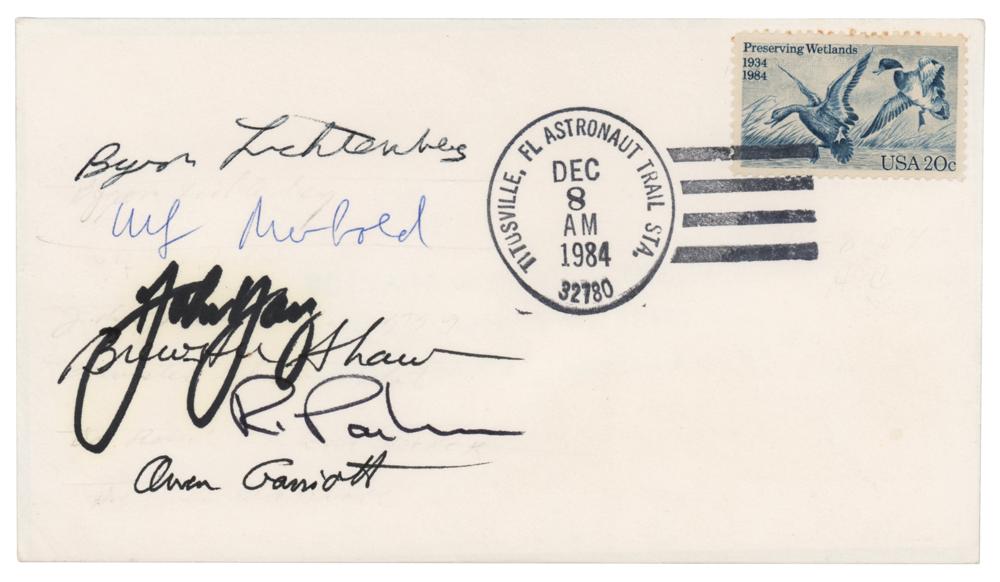 Preserving Wetlands
1934
1984
USA 20c
TITUSVILLE, FL ASTRONAUT TRAIL STA.
DEC
8
AM
1984
32780
Byron Lichtenberg
Ulf Merbold
John Young
Brewster Shaw
R. Parker
Owen Garriott